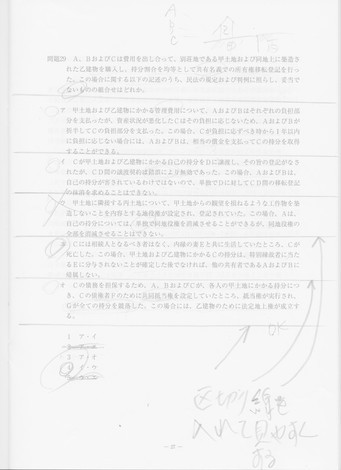 A
B
C
問題29 A、BおよびCは費用を出し合って、別荘地である甲土地および同地上に築造さ
れた乙建物を購入し、持分割合を均等として共有名義での所有権移転登記を行っ
た。この場合に関する以下の記述のうち、民法の規定および判例に照らし、妥当で
ないものの組合せはどれか。
ア 甲土地および乙建物にかかる管理費用について、AおよびBはそれぞれの負担部
分を支払ったが、資産状況が悪化したCはその負担に応じないため、AおよびBが
折半してCの負担部分を支払った。この場合、Cが負担に応ずべき時から1年以内
に負担に応じない場合には、AおよびBは、相当の償金を支払ってCの持分を取得
することができる。
イ Cが甲土地および乙建物にかかる自己の持分をDに譲渡し、その旨の登記がなさ
れたが、CD間の譲渡契約は錯誤により無効であった。この場合、AおよびBは、
自己の持分が害されているわけではないので、単独でDに対してCD間の移転登記
の抹消を求めることはできない。
ウ 甲土地に隣接する丙土地について、甲土地からの眺望を損ねるような工作物を築
造しないことを内容とする地役権が設定され、登記されていた。この場合、Aは、
自己の持分については、単独で同地役権を消滅させることができるが、同地役権の
全部を消滅させることはできない。
エ Cには相続人となるべき者はなく、内縁の妻Eと共に生活していたところ、Cが
死亡した。この場合、甲土地および乙建物にかかるCの持分は、特別縁故者に当た
るEに分与されないことが確定した後でなければ、他の共有者であるAおよびBに
帰属しない。
オ Cの債務を担保するため、A、BおよびCが、各人の甲土地にかかる持分につ
き、Cの債権者Fのために共同抵当権を設定していたところ、抵当権が実行され、
Gが全ての持分を競落した。この場合には、乙建物のために法定地上権が成立す
る。
1 ア・イ
3 イ・ウ
OK
区切り線を
入れて見やすく
する